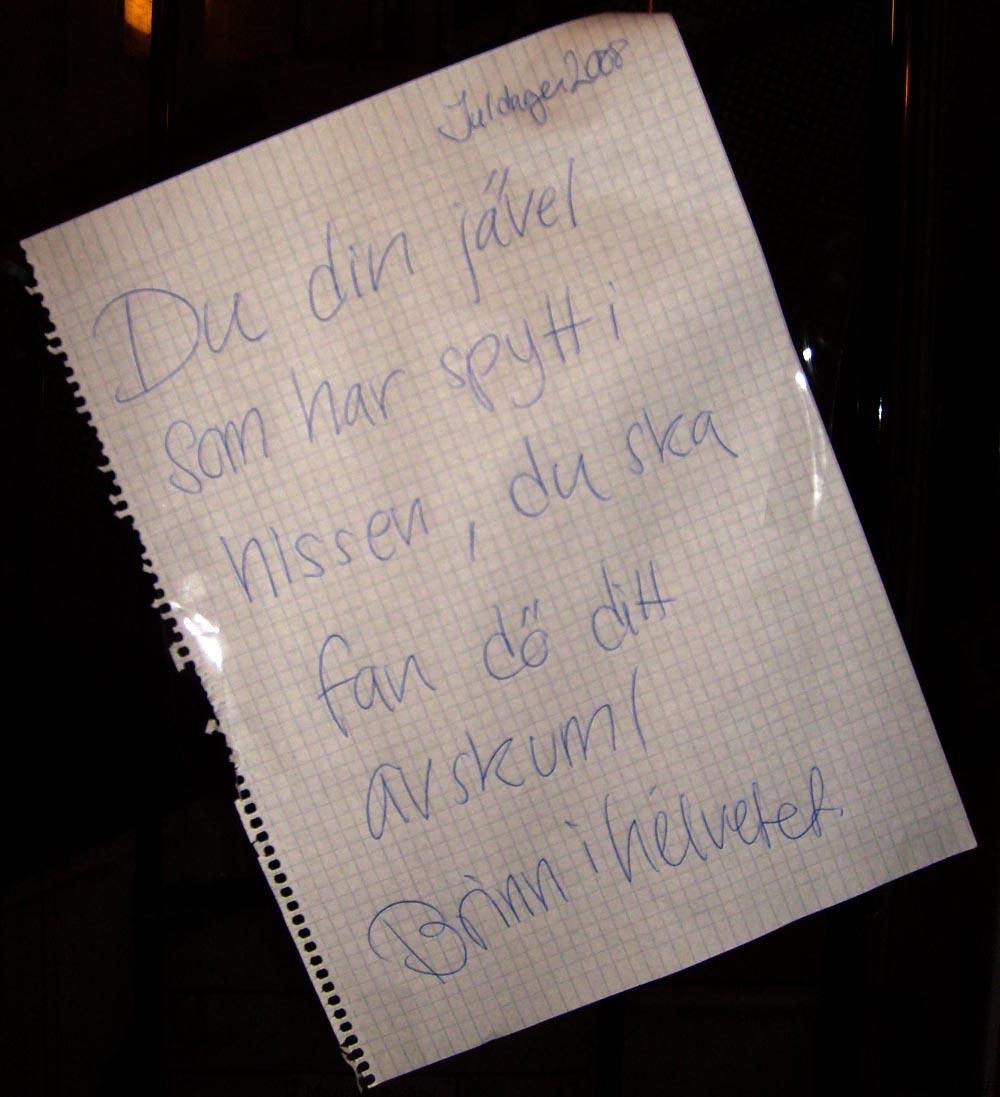 Juldagen 2008
Du din jävel
som har spytt i
hissen, du ska
fan dö ditt
avskum!
Brinn i helvetet.